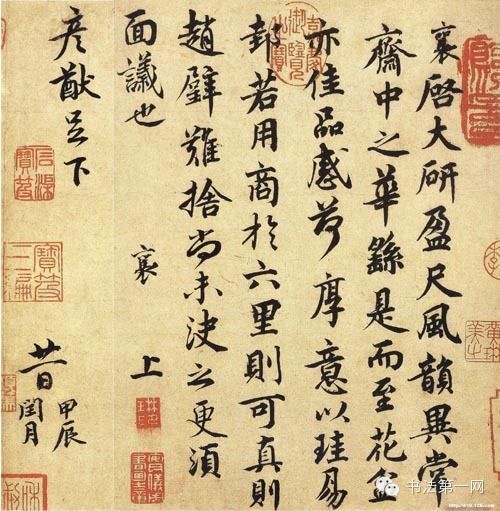 襄啓大研盈尺風韻異常
齋中之華繇是而至花盆
亦佳品感荷厚意以珪易
邽若用商於六里則可真則
趙璧難捨尚未決之更須
面議也
襄 上
彥猷足下
廿一日 甲辰閏月
书法第一网